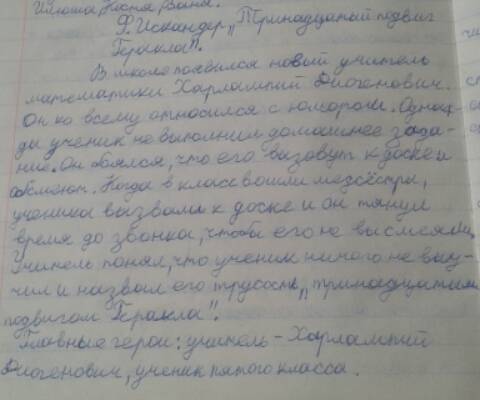 Илюша, Костя, Ваня.
Ф. Искандер „Тринадцатый подвиг
Геракла".
В школе появился новый учитель
математики Харлампий Диогенович.
Он ко всему относился с юмором. Однаж-
ды ученик не выполнил домашнее зада-
ние. Он боялся, что его вызовут к доске и
обсмеют. Когда в класс вошли медсёстры,
ученика вызвали к доске и он тянул
время до звонка, чтобы его не высмеяли.
Учитель понял, что ученик ничего не выу-
чил и назвал его трусость „тринадцатым
подвигом Геракла".
Главные герои: учитель - Харлампий
Диогенович, ученик пятого класса.